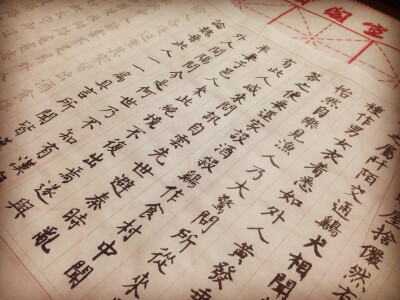 屋舍儼然
之屬阡陌交通雞犬相聞
種作男女衣着悉如外人黃發垂
怡然自樂見漁人乃大驚問所從來
答之便要還家設酒殺雞作食村中聞
有此人咸來問訊自云先世避秦時亂
率妻子邑人來此絕境不復出焉遂與
外人間隔問今是何世乃不知有漢
論魏晉此人一一為具言所聞皆